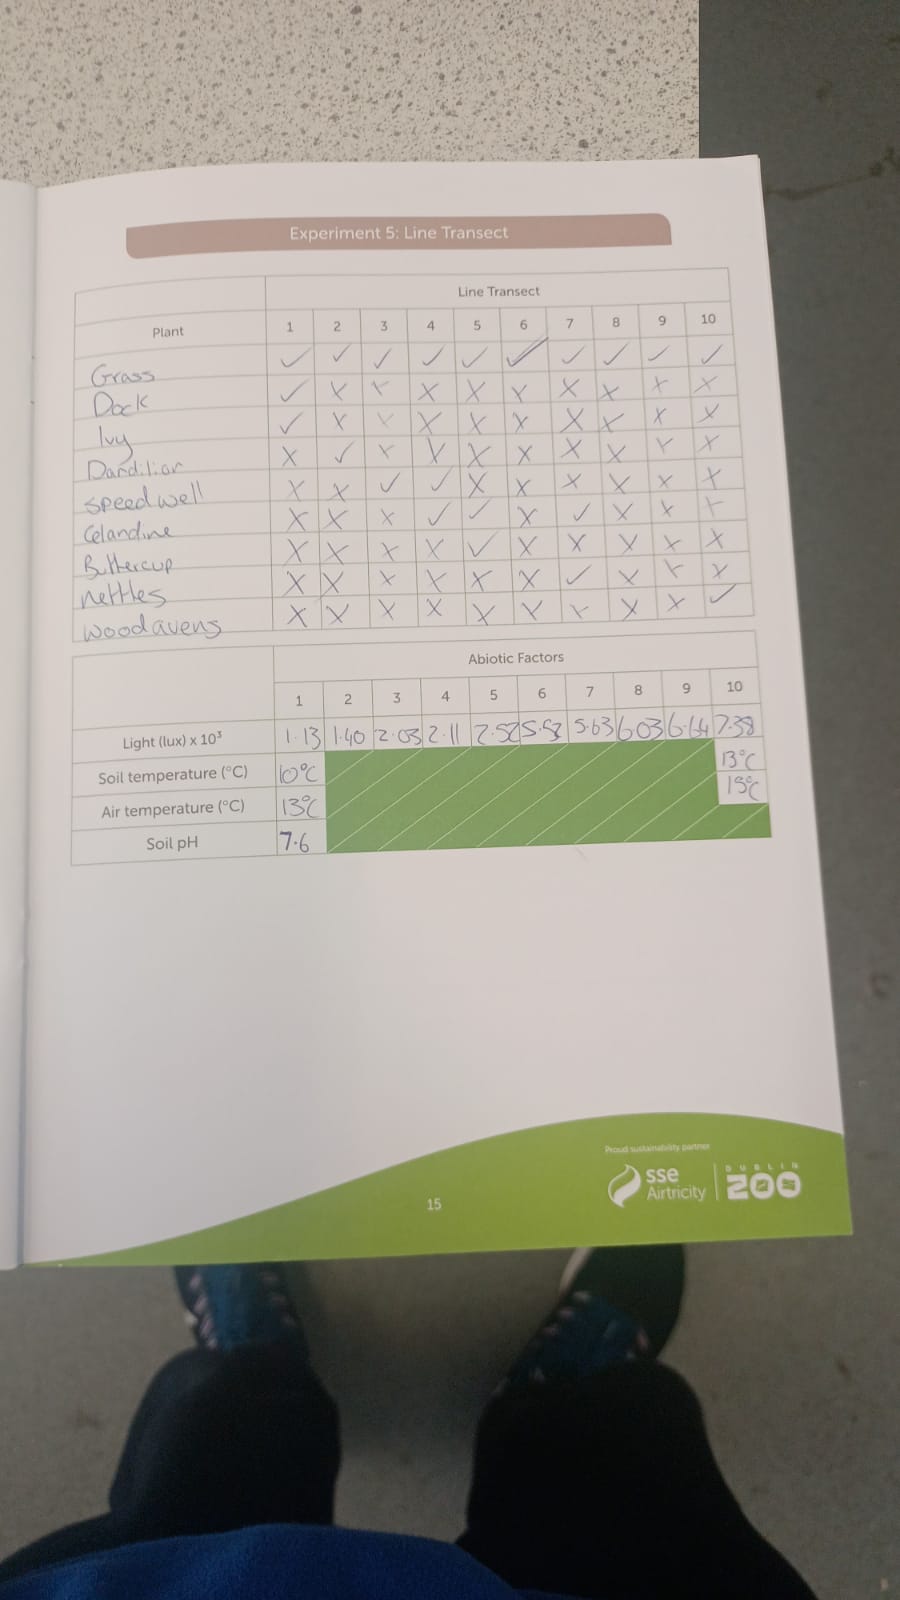 Experiment 5: Line Transect
Line Transect
Plant 1 2 3 4 5 6 7 8 9 10
Grass ✓ ✓ ✓ ✓ ✓ ✓ ✓ ✓ ✓ ✓
Dock ✓ X X X X X X X X X
Ivy ✓ X X X X X X X X X
Dandiliar X ✓ X X X X X X X X
Speedwell X X ✓ ✓ X X X X X X
Celandine X X X ✓ ✓ X ✓ X X X
Buttercup X X X X ✓ X X X X X
nettles X X X X X X ✓ X X X
woodavens X X X X X X X X X ✓
Abiotic Factors
1 2 3 4 5 6 7 8 9 10
Light (lux) x 10³ 1.13 1.40 2.03 2.11 2.52 5.53 5.63 6.03 6.64 7.38
Soil temperature (°C) 10°C 13°C
Air temperature (°C) 13°C 15°C
Soil pH 7.6
Proud sustainability partner
sse
Airtricity
DUBLIN
ZOO
15